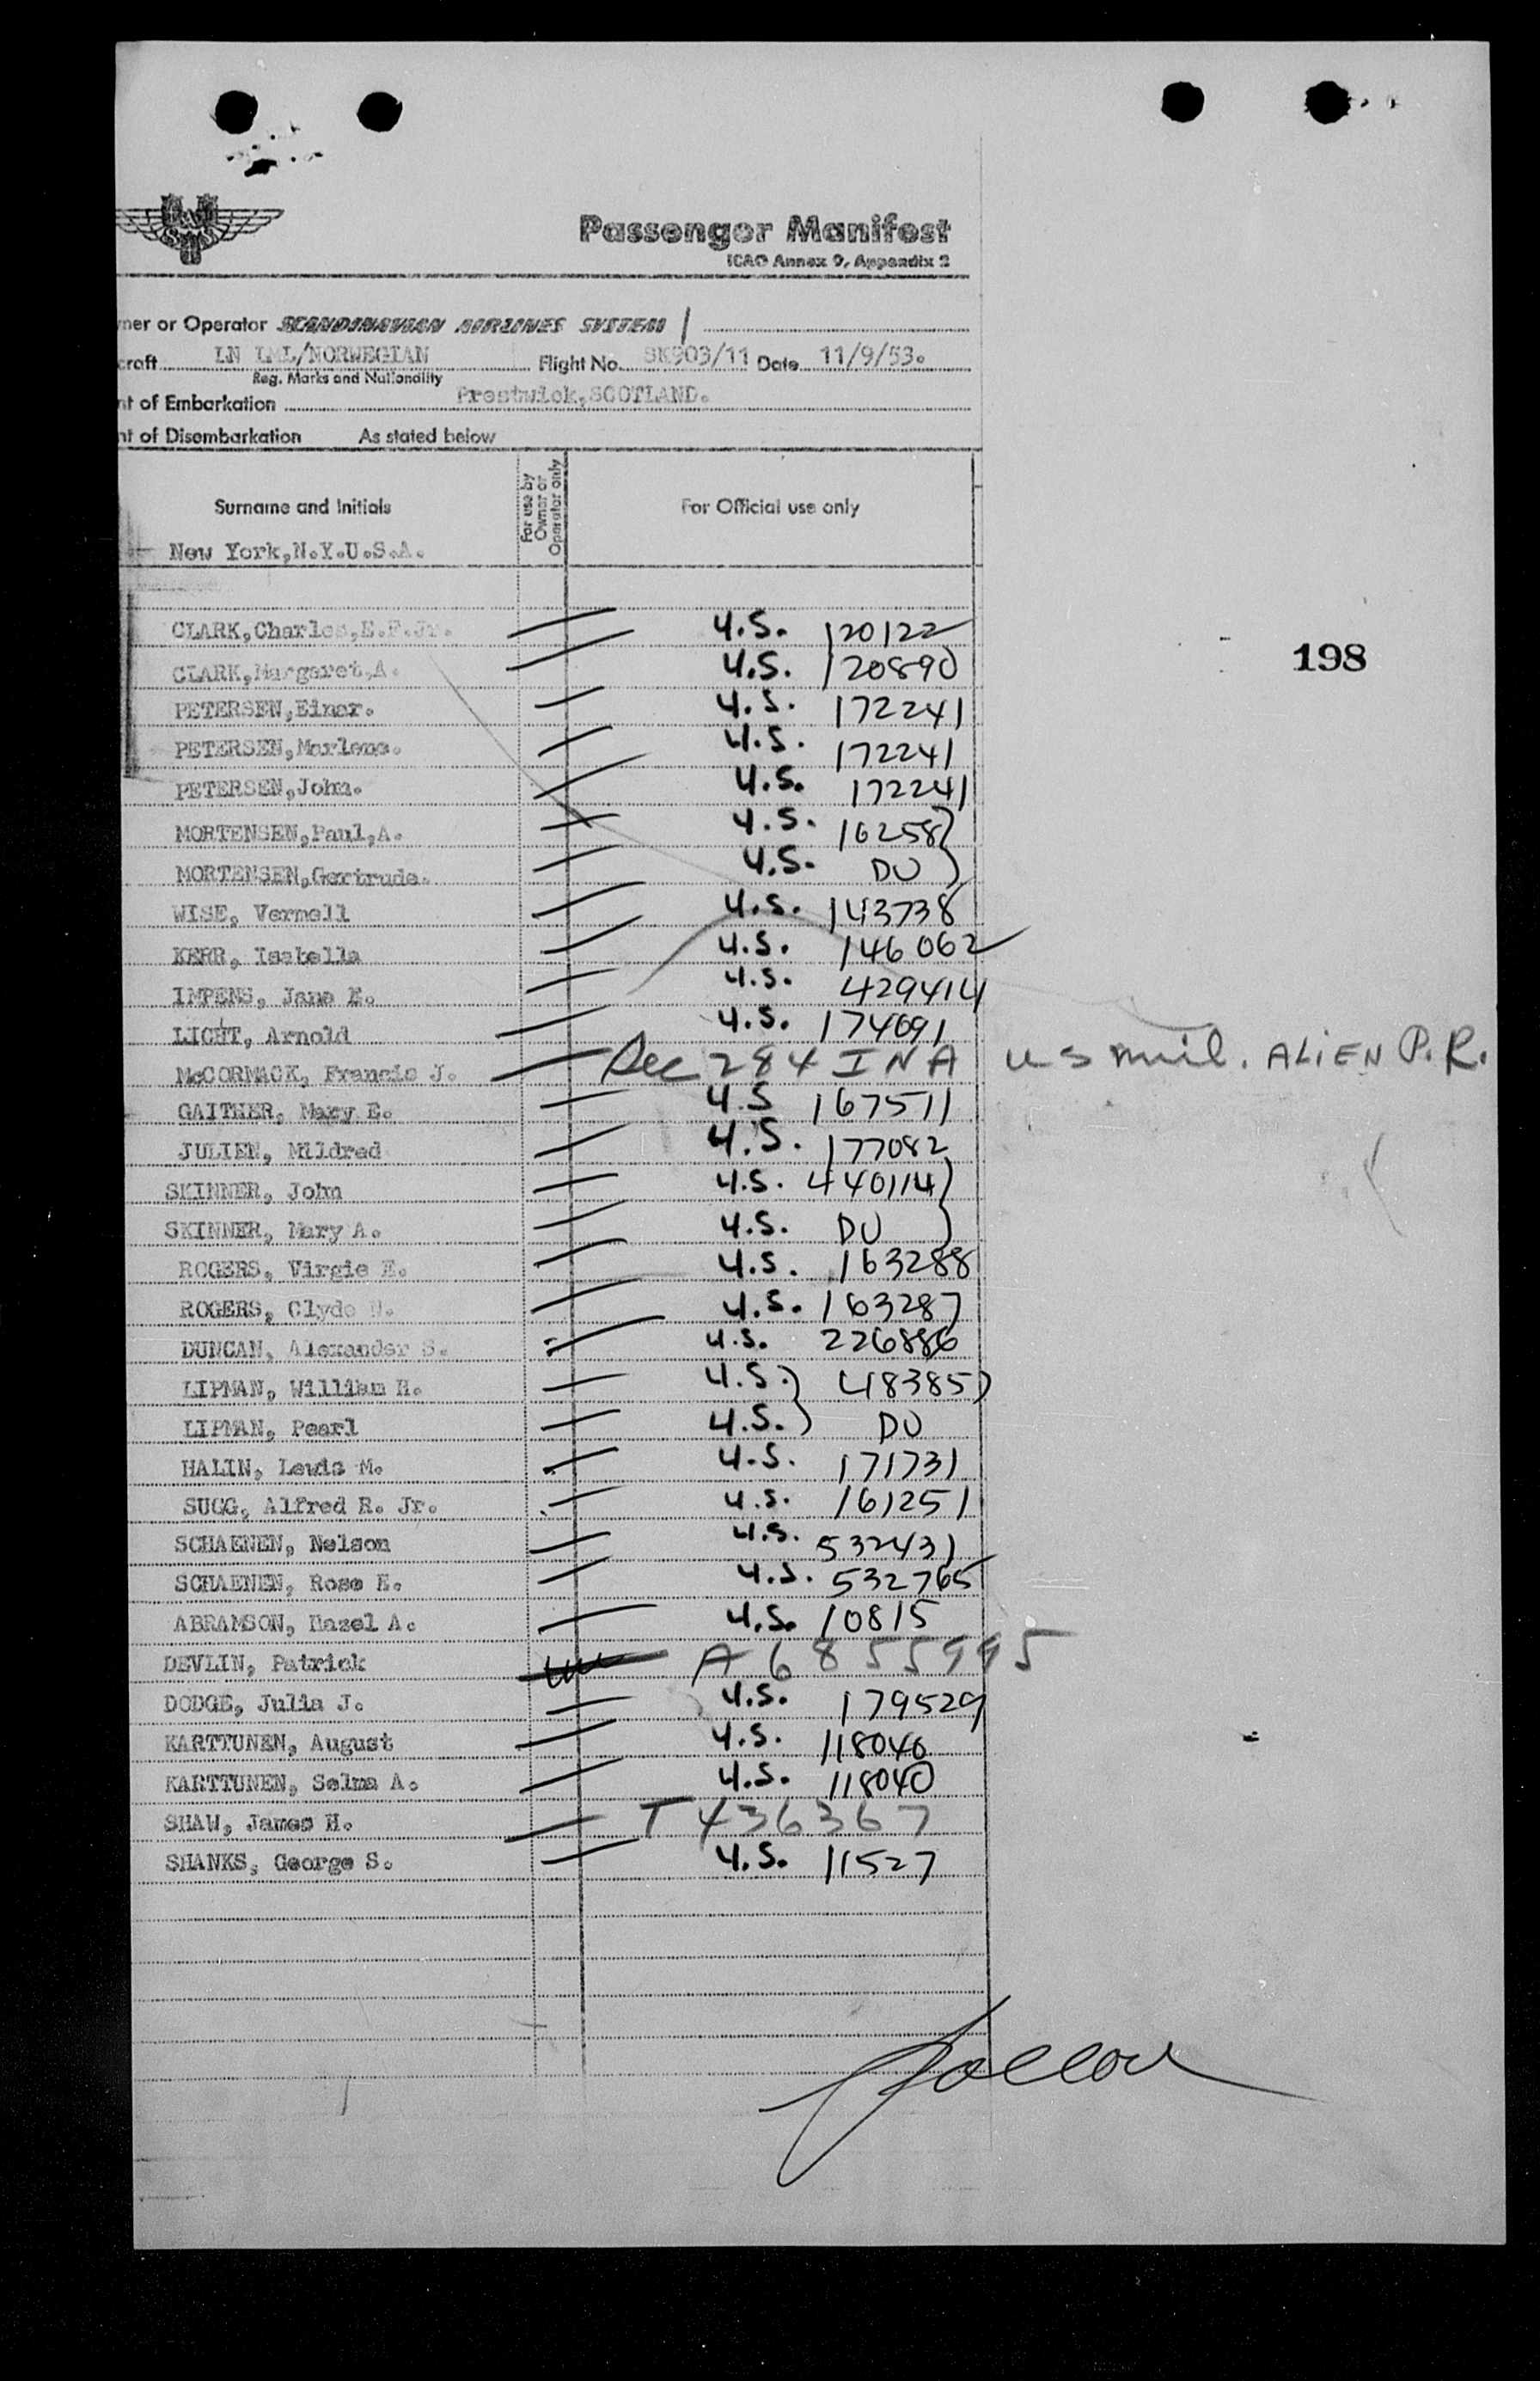 SAS
Passenger Manifest
ICAO Annex 9, Appendix 2
ner or Operator SCANDINAVIAN AIRLINES SYSTEM
craft LN LML/NORWEGIAN Flight No. SK903/11 Date 11/9/53.
Reg. Marks and Nationality
nt of Embarkation Prestwick,SCOTLAND.
nt of Disembarkation As stated below
Surname and Initials For use by Owner or Operator only For Official use only
New York,N.Y.U.S.A.
CLARK,Charles,E.F.Jr. U.S. 120122
198
CLARK,Margaret,A. U.S. 120890
PETERSEN,Einar. U.S. 172241
PETERSEN,Marlene. U.S. 172241
PETERSEN,John. U.S. 172241
MORTENSEN,Paul,A. U.S. 16258)
MORTENSEN,Gertrude. U.S. DO )
WISE, Vernell U.S. 143738
KERR, Isabella U.S. 146062
IMPENS, Jane E. U.S. 429414
LICHT, Arnold U.S. 174691
McCORMACK, Francis J. Sec 284 INA US mil. ALIEN P.R.
GAITHER, Mary E. U.S 167511
JULIEN, Mildred U.S. 177082
SKINNER, John U.S. 440114)
SKINNER, Mary A. U.S. DO )
ROGERS, Virgie E. U.S. 163288
ROGERS, Clyde U.S. 163287
DUNCAN, Alexander S. U.S. 226886
LIPMAN, William H. U.S.) 418385)
LIPMAN, Pearl U.S.) DO
HALIN, Lewis M. U.S. 171731
SUGG, Alfred R. Jr. U.S. 161251
SCHAENEN, Nelson U.S. 532431
SCHAENEN, Rose E. U.S. 532765
ABRAMSON, Hazel A. U.S. 10815
DEVLIN, Patrick A6855995
DODGE, Julia J. U.S. 179529
KARTTUNEN, August U.S. 118040
KARTTUNEN, Selma A. U.S. 118040
SHAW, James H. T436367
SHANKS, George S. U.S. 11527